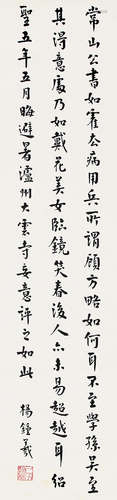 常山公書如霍去病用兵所謂顧方略如何耳不至學孫吳至
其得意處乃如戴花美女臨鏡笑春後人亦未易超越耳紹
聖五年五月晦避暑瀘州大雲寺妄意評之如此
楊鍾羲